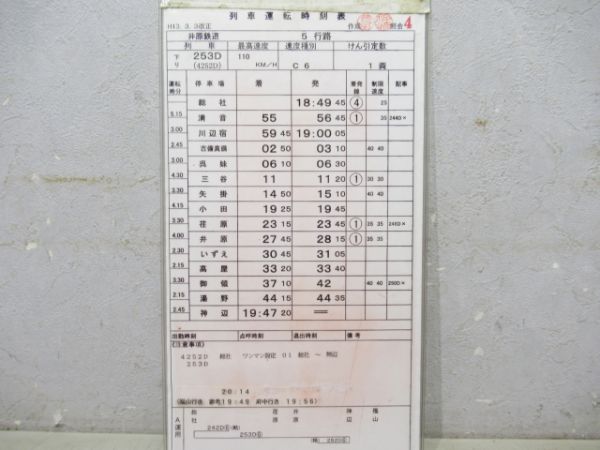 列車運転時刻表
H13. 3. 3改正 作成 照合 4
井原鉄道 5 行路
列車 最高速度 速度種別 けん引定数
下り 253D (4252D) 110 KM/H C6 1 両
運転時分 停車場 着 発 着発線 制限速度 記事
総社 18:49 45 ④ 25
5.15 清音 55 56 45 ① 25 244D×
3.00 川辺宿 59 45 19:00 05
2.45 吉備真備 02 50 03 10 40 40
3.00 呉妹 06 10 06 30
4.30 三谷 11 11 20 ① 30 30
3.30 矢掛 14 50 15 10 40 40
4.15 小田 19 25 19 45
3.30 荏原 23 15 23 45 ① 35 35 246D×
4.00 井原 27 45 28 15 ① 35 35
2.30 いずえ 30 45 31 05
2.15 高屋 33 20 33 40
3.30 御領 37 10 42 40 40 250D×
2.15 湯野 44 15 44 35
2.45 神辺 19:47 20 ═
出勤時刻 点呼時刻 退出時刻 備考
(注意事項)
4252D 総社 ワンマン設定 01 総社 ～ 神辺
253D
20:14
(福山行き 参考19:49 府中行き 19:56)
A運用 総社 荏原 井原 神辺 福山
242D⑥(転)
253D⑥
(転) 252D⑥